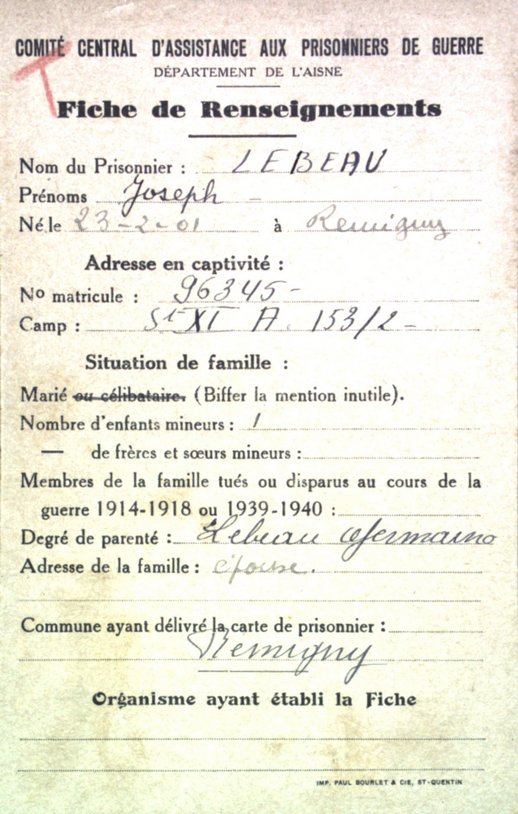 COMITÉ CENTRAL D'ASSISTANCE AUX PRISONNIERS DE GUERRE
DÉPARTEMENT DE L'AISNE
Fiche de Renseignements
Nom du Prisonnier : LEBEAU
Prénoms Joseph -
Né le 23-2-01 à Remigny
Adresse en captivité :
No matricule : 96345-
Camp : St XI A. 153/2-
Situation de famille :
Marié ou célibataire. (Biffer la mention inutile).
Nombre d'enfants mineurs : 1
— de frères et sœurs mineurs :
Membres de la famille tués ou disparus au cours de la
guerre 1914-1918 ou 1939-1940 :
Degré de parenté : Lebeau
Adresse de la famille : épouse.
Commune ayant délivré la carte de prisonnier :
Remigny
Organisme ayant établi la Fiche
IMP. PAUL BOURLET & CIE, ST-QUENTIN